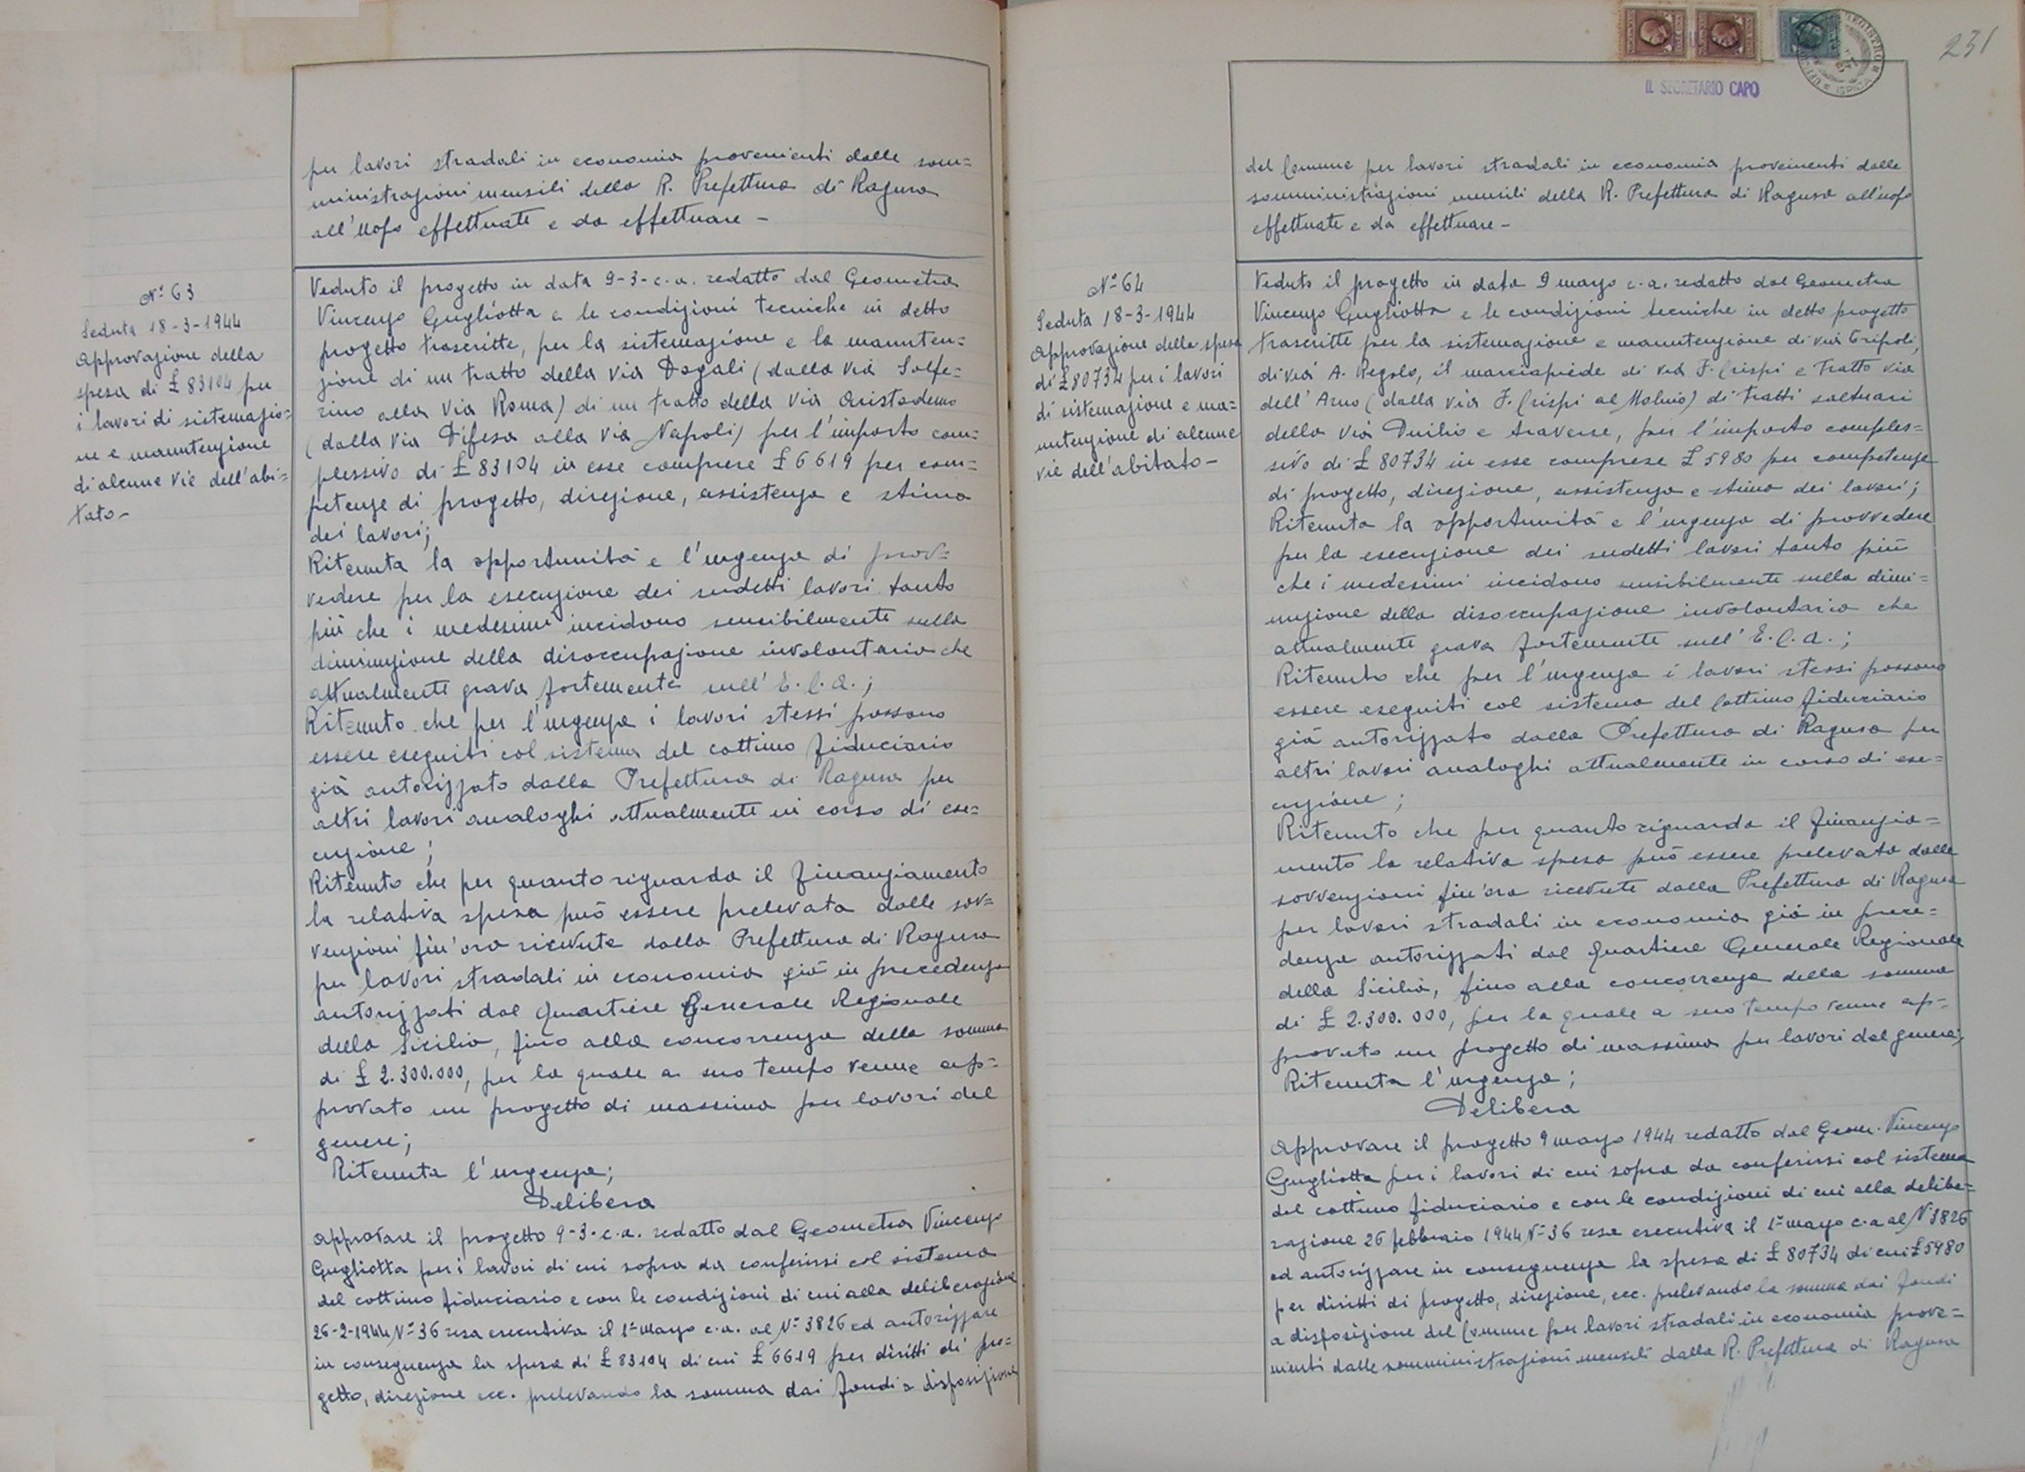 per lavori stradali in economia provenienti dalle som=
ministrazioni mensili della R. Prefettura di Ragusa
all'uopo effettuate e da effettuare -
N° 63
Seduta 18-3-1944
Approvazione della
spesa di £ 83104 per
i lavori di sistemazio=
ne e manutenzione
di alcune vie dell'abi=
tato -
Veduto il progetto in data 9-3-c.a. redatto dal Geometra
Vincenzo Gugliotta e le condizioni tecniche in detto
progetto trascritte, per la sistemazione e la manuten=
zione di un tratto della via Dogali (dalla via Solfe=
rino alla via Roma) di un tratto della via Aristodemo
(dalla via Difesa alla via Napoli) per l'importo com=
plessivo di £ 83104 in esse comprese £ 6619 per com=
petenze di progetto, direzione, assistenza e stima
dei lavori;
Ritenuta la opportunità e l'urgenza di prov=
vedere per la esecuzione dei sudetti lavori tanto
più che i medesimi incidono sensibilmente sulla
diminuzione della disoccupazione involontaria che
attualmente grava fortemente sull'E.C.A.;
Ritenuto che per l'urgenza i lavori stessi possono
essere eseguiti col sistema del cottimo fiduciario
già autorizzato dalla Prefettura di Ragusa per
altri lavori analoghi attualmente in corso di ese=
cuzione;
Ritenuto che per quanto riguarda il finanziamento
la relativa spesa può essere prelevata dalle sov=
venzioni fin'ora ricevute dalla Prefettura di Ragusa
per lavori stradali in economia già in precedenza
autorizzati dal Quartiere Generale Regionale
della Sicilia, fino alla concorrenza della somma
di £ 2.300.000, per la quale a suo tempo venne ap=
provato un progetto di massima per lavori del
genere;
Ritenuta l'urgenza;
Delibera
Approvare il progetto 9-3-c.a. redatto dal Geometra Vincenzo
Gugliotta per i lavori di cui sopra da conferirsi col sistema
del cottimo fiduciario e con le condizioni di cui alla deliberazione
26-2-1944 N° 36 resa esecutiva il 1° marzo c.a. al N° 3826 ed autorizzare
in conseguenza la spesa di £ 83104 di cui £ 6619 per diritti di pro=
getto, direzione ecc. prelevando la somma dai fondi a disposizione
231
IL SEGRETARIO CAPO
del Comune per lavori stradali in economia provenienti dalle
somministrazioni mensili della R. Prefettura di Ragusa all'uopo
effettuate e da effettuare -
N° 64
Seduta 18-3-1944
Approvazione della spesa
di £ 80734 per i lavori
di sistemazione e ma=
nutenzione di alcune
vie dell'abitato -
Veduto il progetto in data 9 marzo c.a. redatto dal Geometra
Vincenzo Gugliotta e le condizioni tecniche in detto progetto
trascritte per la sistemazione e manutenzione di via Tripoli,
di via A. Regolo, il marciapiede di via F. Crispi e tratto via
dell'Arno (dalla via F. Crispi al Molino) di tratti saltuari
della via Duilio e traverse, per l'importo comples=
sivo di £ 80734 in esse comprese £ 5980 per competenze
di progetto, direzione, assistenza e stima dei lavori;
Ritenuta la opportunità e l'urgenza di provvedere
per la esecuzione dei sudetti lavori tanto più
che i medesimi incidono sensibilmente sulla dimi=
nuzione della disoccupazione involontaria che
attualmente grava fortemente sull'E.C.A.;
Ritenuto che per l'urgenza i lavori stessi possono
essere eseguiti col sistema del cottimo fiduciario
già autorizzato dalla Prefettura di Ragusa per
altri lavori analoghi attualmente in corso di ese=
cuzione;
Ritenuto che per quanto riguarda il finanzia=
mento la relativa spesa può essere prelevata dalle
sovvenzioni fin'ora ricevute dalla Prefettura di Ragusa
per lavori stradali in economia già in prece=
denza autorizzati dal Quartiere Generale Regionale
della Sicilia, fino alla concorrenza della somma
di £ 2.300.000, per la quale a suo tempo venne ap=
provato un progetto di massima per lavori del genere;
Ritenuta l'urgenza;
Delibera
Approvare il progetto 9 marzo 1944 redatto dal Geom. Vincenzo
Gugliotta per i lavori di cui sopra da conferirsi col sistema
del cottimo fiduciario e con le condizioni di cui alla delibe=
razione 26 febbraio 1944 N° 36 resa esecutiva il 1° marzo c.a al N° 3826
ed autorizzare in conseguenza la spesa di £ 80734 di cui £ 5980
per diritti di progetto, direzione, ecc. prelevando la somma dai fondi
a disposizione del Comune per lavori stradali in economia prove=
nienti dalle somministrazioni mensili dalla R. Prefettura di Ragusa